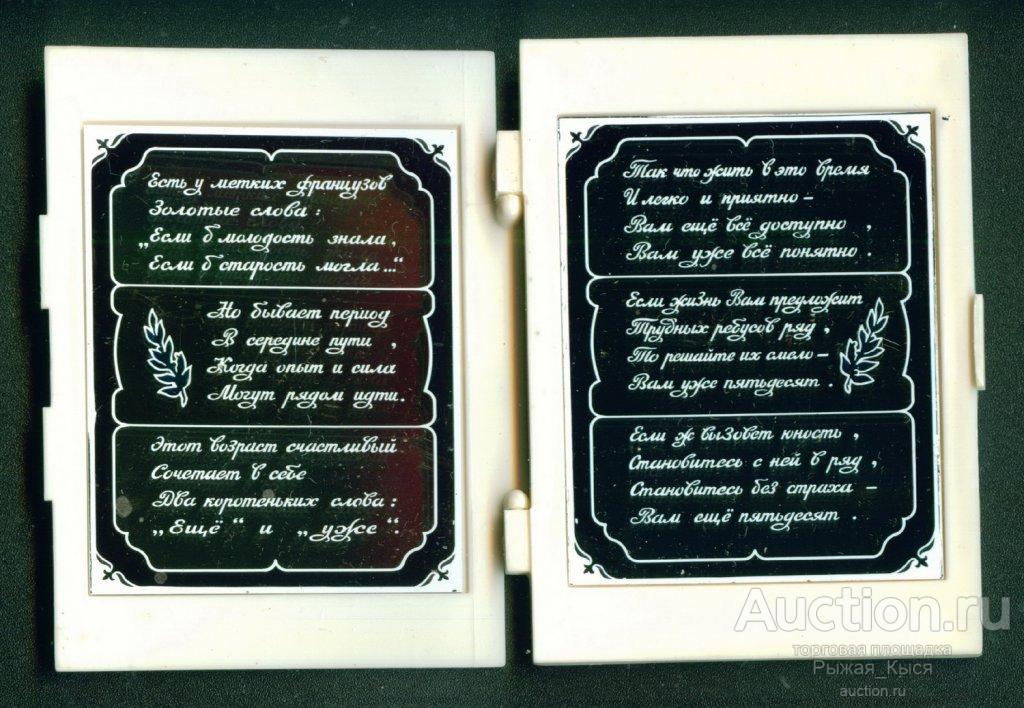 Есть у метких французов
Золотые слова:
„Если б молодость знала,
Если б старость могла..."
Но бывает период
В середине пути,
Когда опыт и сила
Могут рядом идти.
Этот возраст счастливый
Сочетает в себе
Два коротеньких слова:
„Ещё" и „уже".
Так что жить в это время
И легко и приятно –
Вам ещё всё доступно,
Вам уже всё понятно.
Если жизнь Вам предложит
Трудных ребусов ряд,
То решайте их смело –
Вам уже пятьдесят.
Если ж вызовет юность,
Становитесь с ней в ряд,
Становитесь без страха –
Вам ещё пятьдесят.
Auction.ru
торговая площадка
Рыжая_Кыся
auction.ru